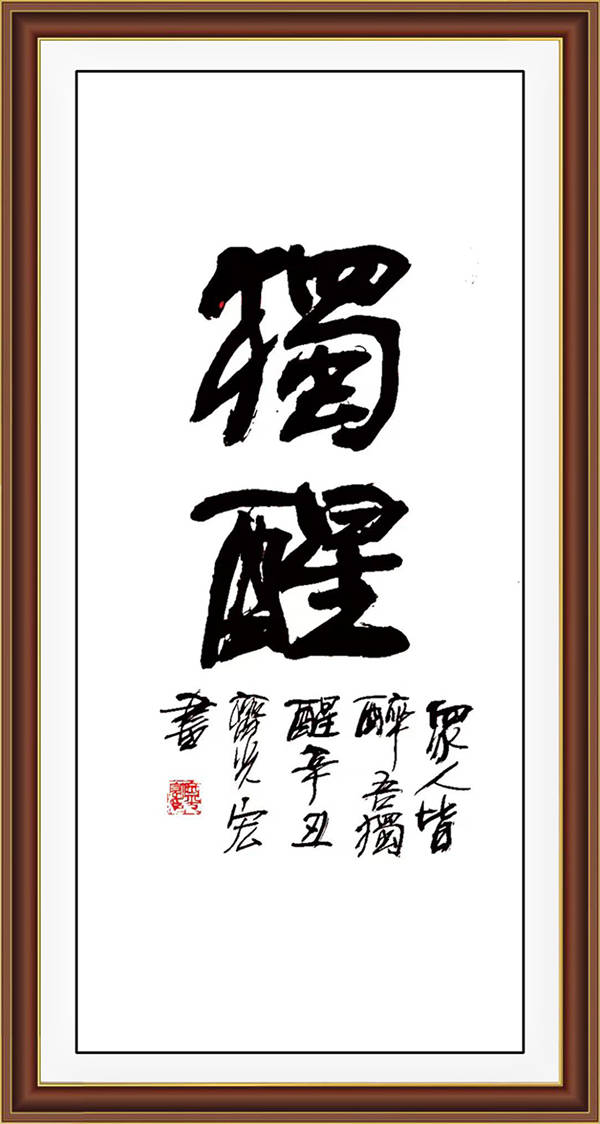 獨
醒
眾人皆
醉吾獨
醒辛丑
齊光宏
書